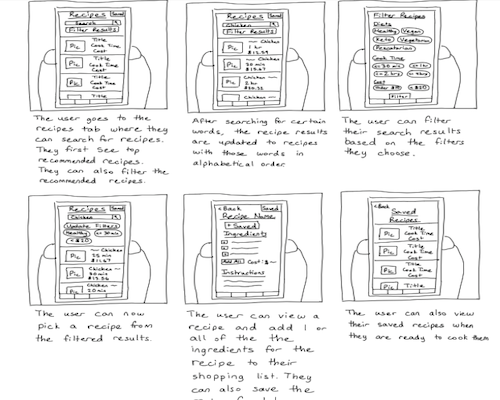 Recipes Saved
Search
Filter Results
Pic Title
Cook Time
Cost
Pic Title
Cook Time
Cost
Pic Title
Cook Time
Cost
Title
The user goes to the
recipes tab where they
can search for recipes.
They first see top
recommended recipes.
They can also filter the
recommended recipes.
Recipes Saved
Chicken
Filter Results
Pic Chicken
1 hr
Pic Chicken
30 min
Pic Chicken
2 hr
Chicken
After searching for certain
words, the recipe results
are updated to recipes
with those words in
alphabetical order.
Filter Recipes
Diets
Healthy Vegan
Keto Vegetarian
Pescatarian
Cook Time
Cost
Filter
The user can filter
their search results
based on the filters
they choose.
Recipes Saved
Chicken
Update Filters
Healthy
Pic Chicken
25 min
$11.67
Pic Chicken
30 min
Pic Chicken
20 min
The user can now
pick a recipe from
the filtered results.
<Back Saved
Recipe Name
+ Saved
Ingredients
Add All Cost:$~
Instructions
The user can view a
recipe and add 1 or
all of the the
ingredients for the
recipe to their
shopping list. They
can also save the
<Back
Saved
Recipes
Pic Title
Cook Time
Cost
Pic Title
Cook Time
Cost
Pic Title
Cook Time
Cost
Pic Title
The user can also view
their saved recipes when
they are ready to cook them